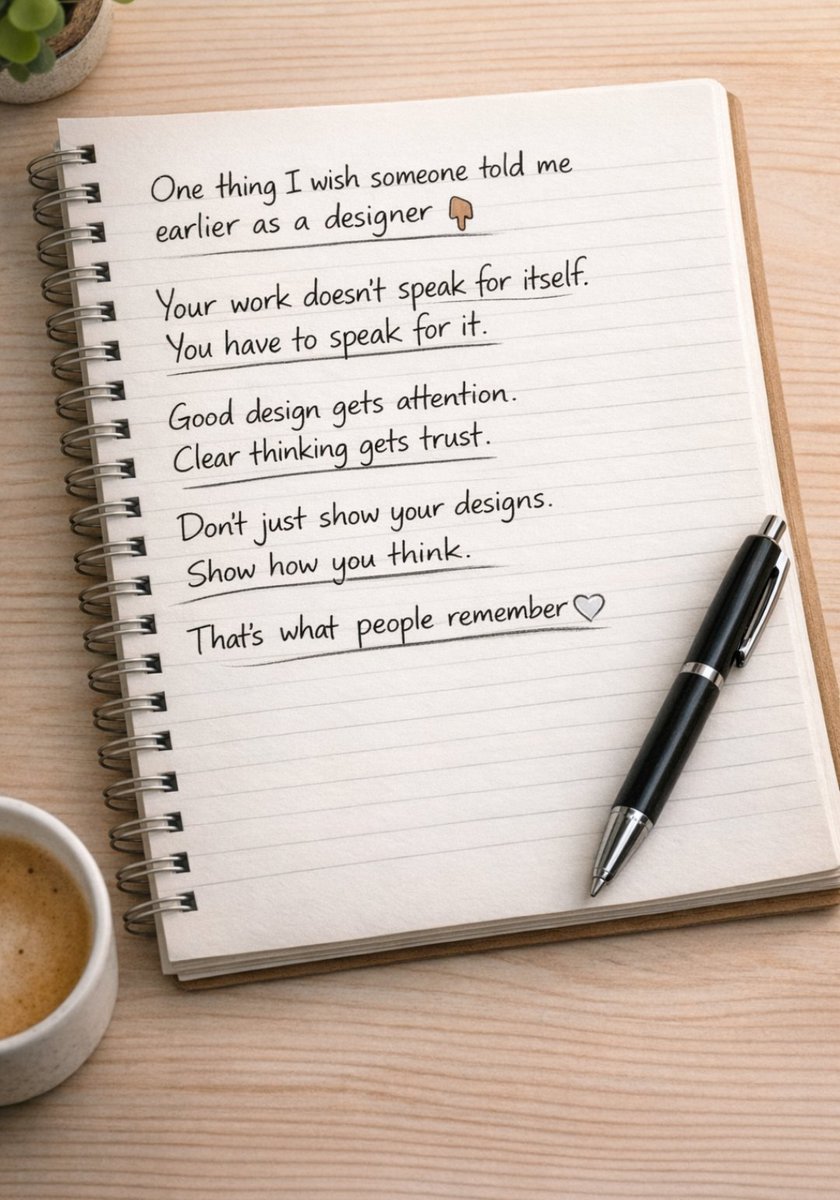 One thing I wish someone told me
earlier as a designer 👇🏽
Your work doesn't speak for itself.
You have to speak for it.
Good design gets attention.
Clear thinking gets trust.
Don't just show your designs.
Show how you think.
That's what people remember🤍